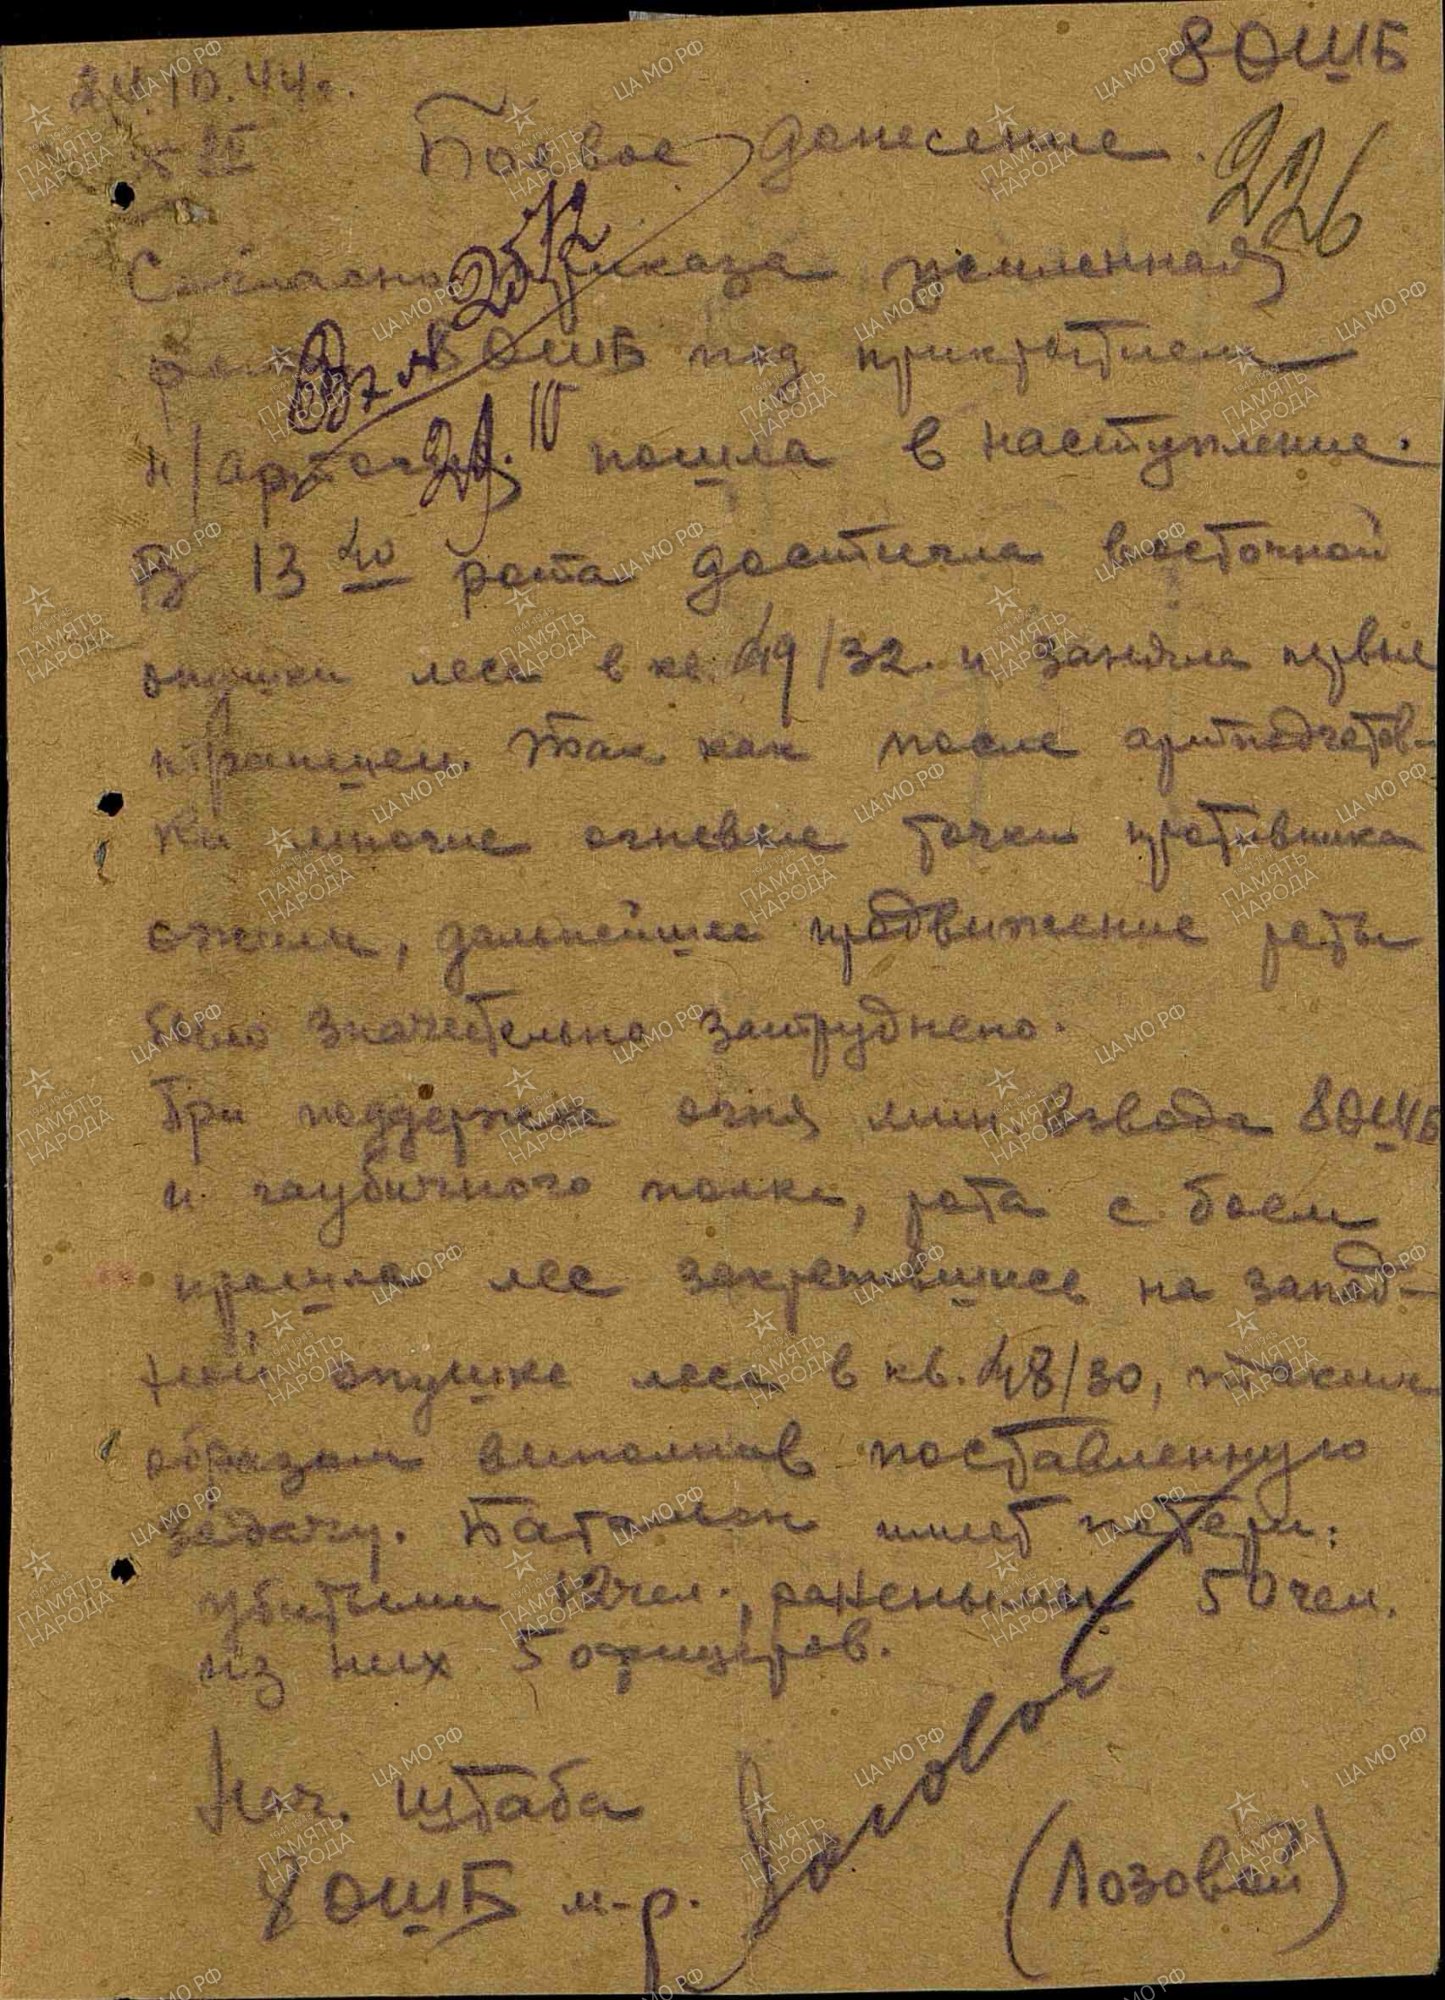 8 ОШБ
24.10.44г.
226
Боевое донесение.
Вх № 2572
24.10
Согласно приказа усиленная
рота 8 ОШБ под прикрытием
н/артогня пошла в наступление.
В 13 40 рота достигла восточной
опушки леса в кв. 49/32 и заняла первые
траншеи. Так как после артподготов-
ки многие огневые точки противника
ожили, дальнейшее продвижение роты
было значительно затруднено.
При поддержке огня мин взвода 8 ОШБ
и гаубичного полка, рота с боем
прошла лес закрепившись на запад-
ной опушке леса в кв. 48/30, таким
образом выполнив поставленную
задачу. Батальон имеет потери:
убитыми 12 чел., ранеными 50 чел.
из них 5 офицеров.
Нач. штаба
8 ОШБ м-р. Лозовой
(Лозовой)